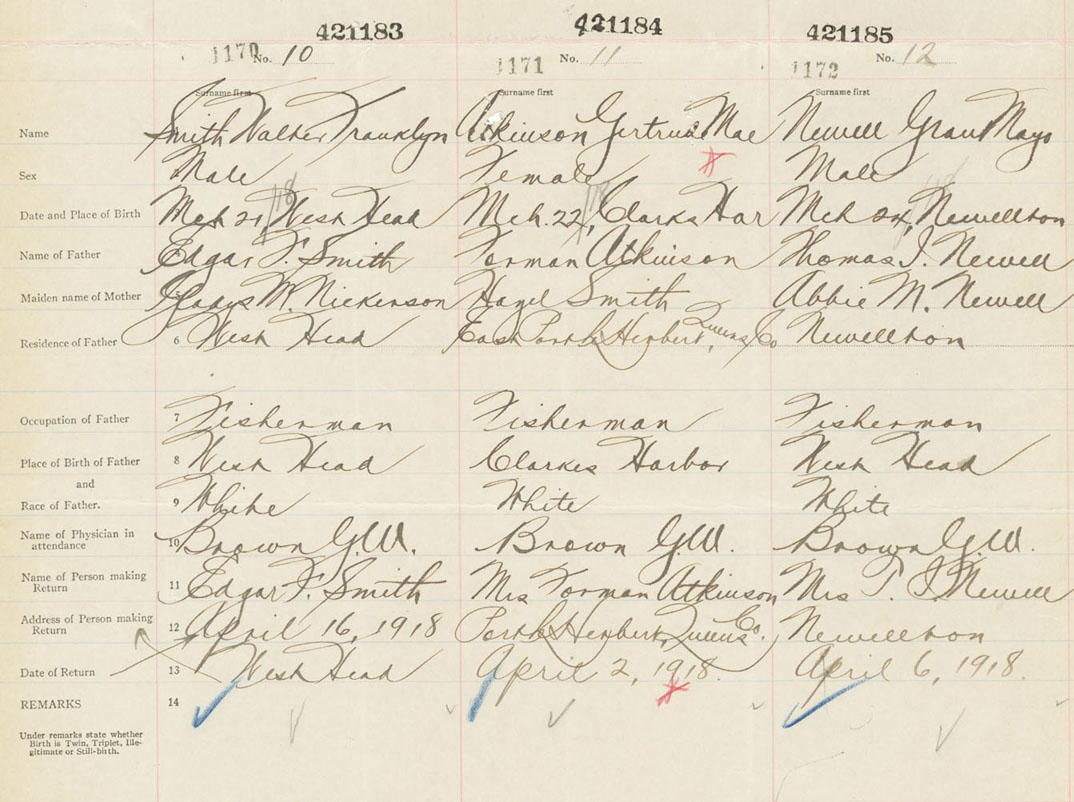 421183 421184 421185
1170 No. 10 1171 No. 11 1172 No. 12
Surname first Surname first Surname first
Name Smith Walter Franklyn Atkinson Gertrude Mae Newell Grant Mayo
Sex Male Female Male
Date and Place of Birth Mch 21, /18 West Head Mch. 22, /18 Clarks Har Mch 24, /18 Newellton
Name of Father Edgar F. Smith Forman Atkinson Thomas I. Newell
Maiden name of Mother 5 Gladys M. Nickerson Hazel Smith Abbie M. Newell
Residence of Father 6 West Head East Port Herbert, Queens Co Newellton
Occupation of Father 7 Fisherman Fisherman Fisherman
Place of Birth of Father 8 West Head Clarkes Harbor West Head
and
Race of Father. 9 White White White
Name of Physician in attendance 10 Brown G.W. Brown G.W. Brown G.W.
Name of Person making Return 11 Edgar F. Smith Mrs Forman Atkinson Mrs T. I. Newell
Address of Person making Return 12 April 16, 1918 Port Herbert, Queens Co. Newellton
Date of Return 13 West Head April 2, 1918. April 6, 1918.
REMARKS 14
Under remarks state whether
Birth is Twin, Triplet, Ille-
gitimate or Still-birth.